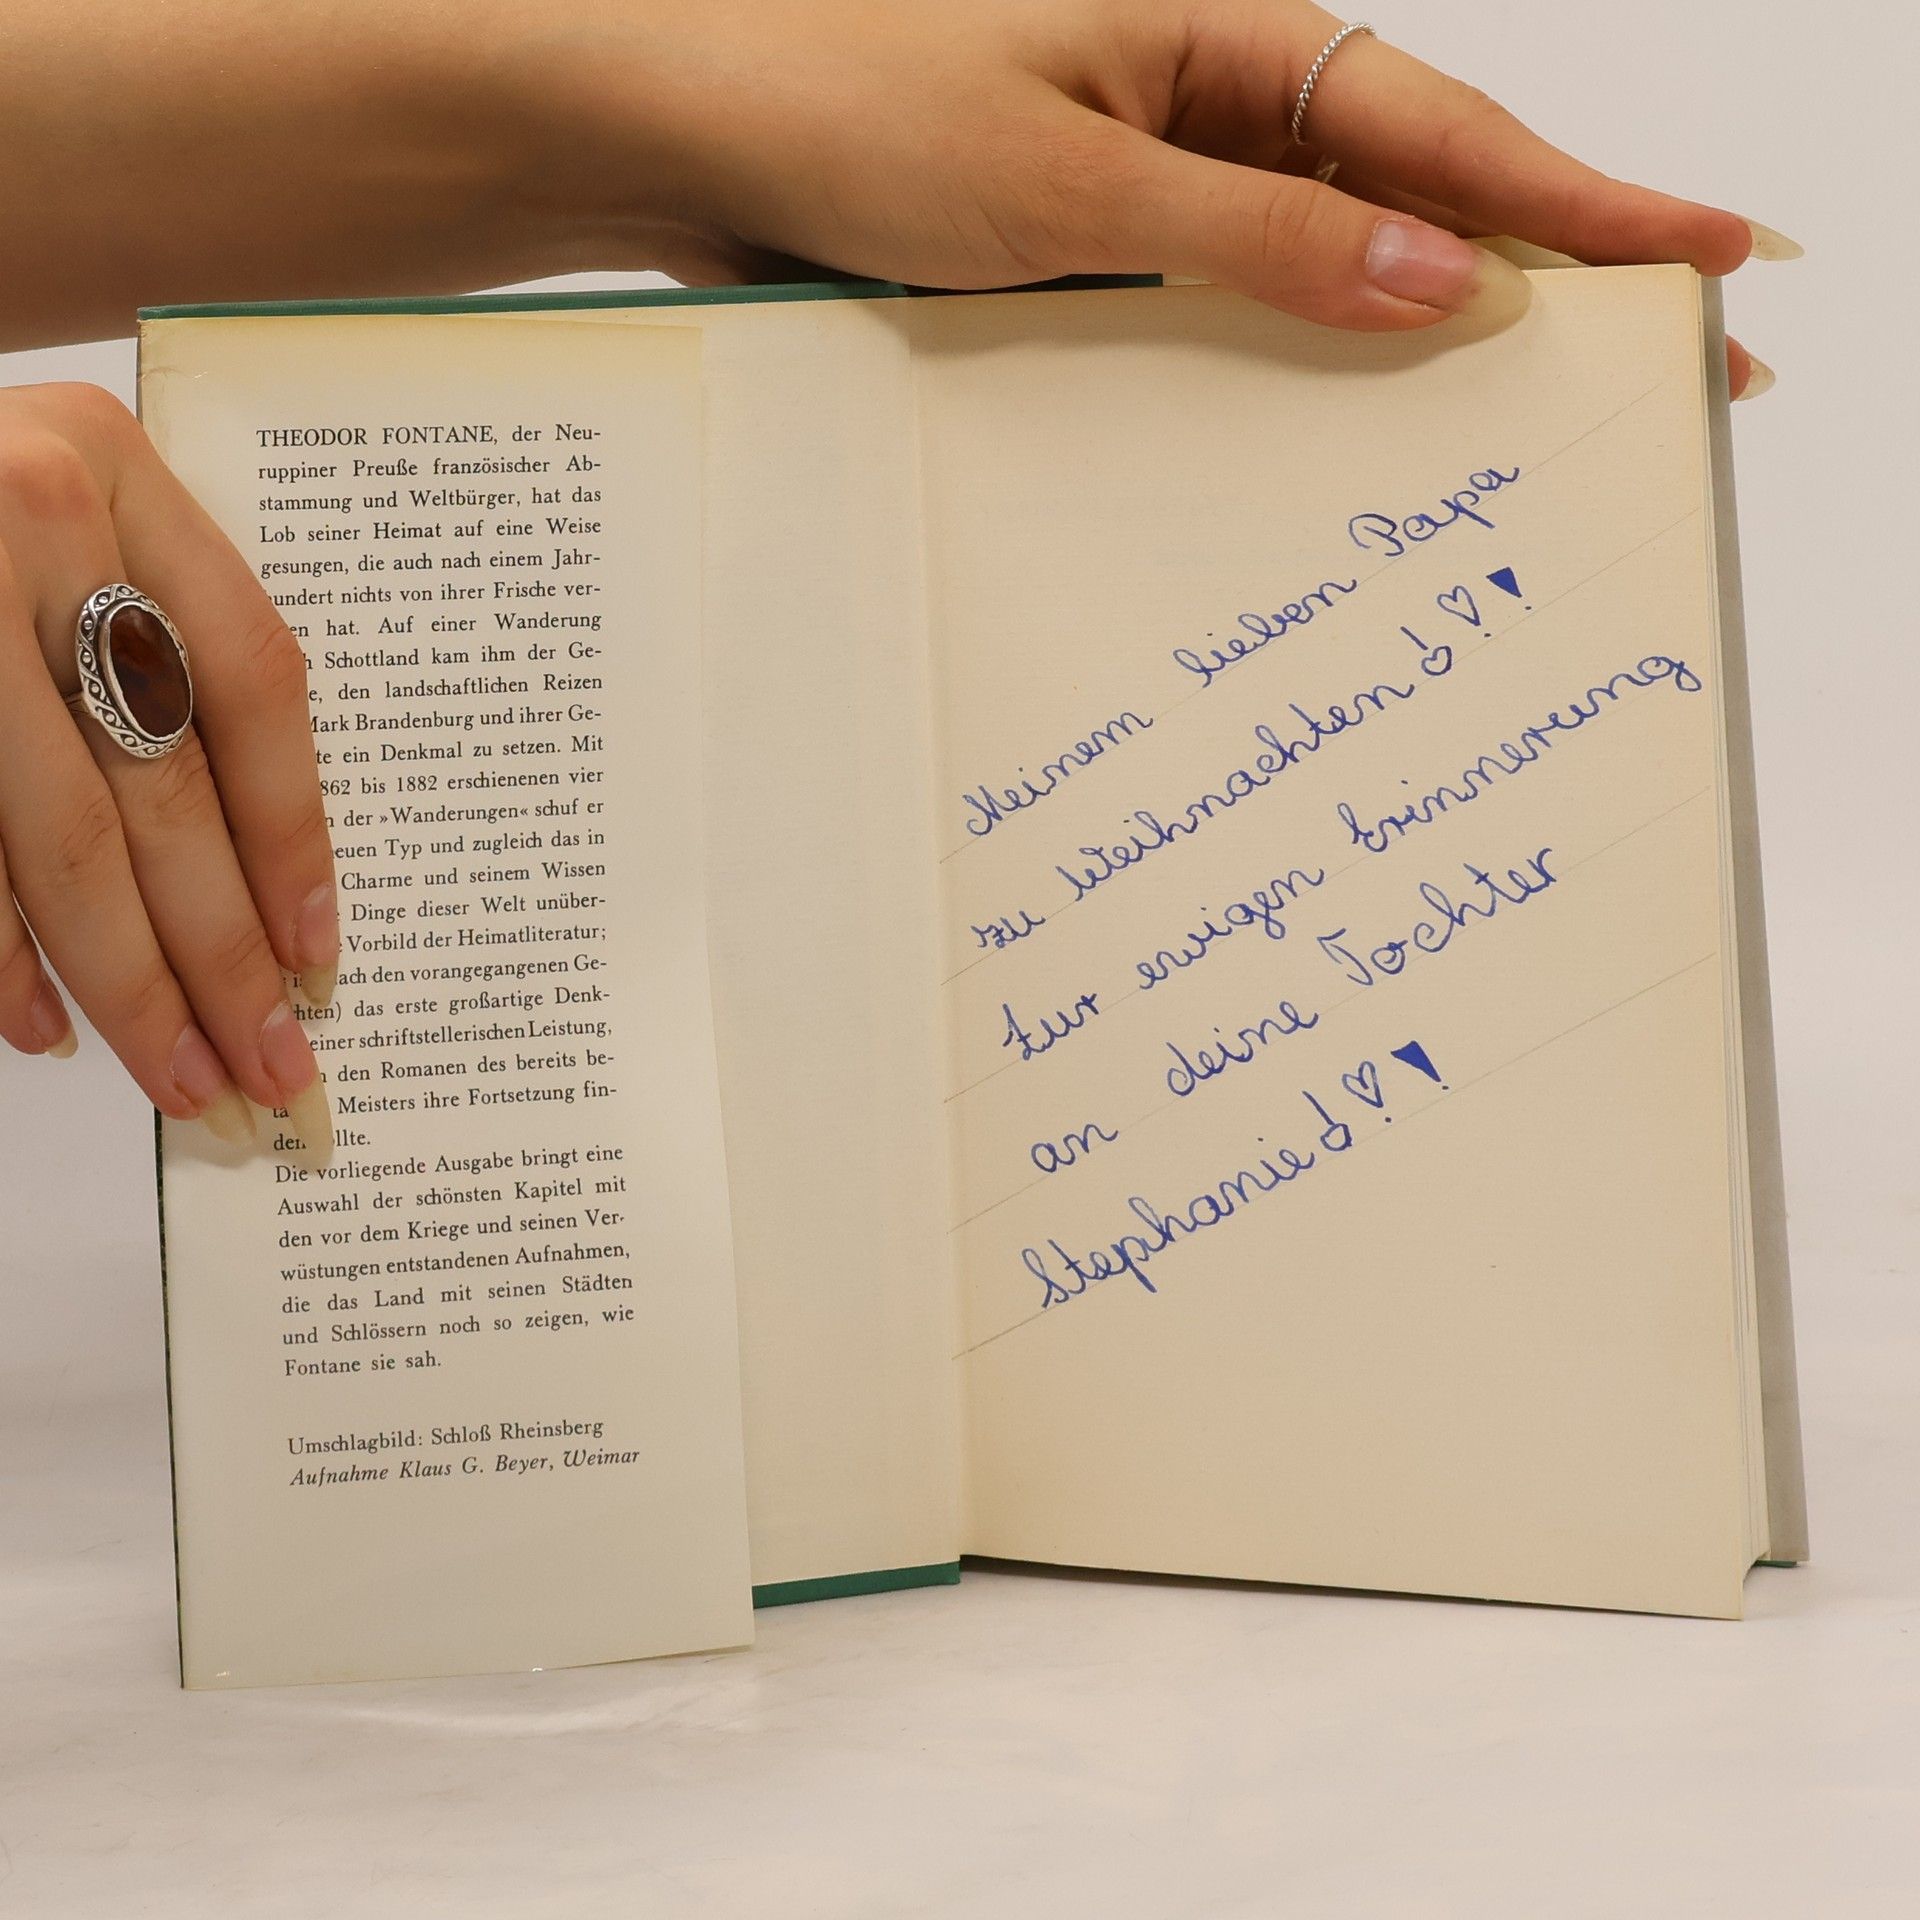 THEODOR FONTANE, der Neu-
ruppiner Preuße französischer Ab-
stammung und Weltbürger, hat das
Lob seiner Heimat auf eine Weise
gesungen, die auch nach einem Jahr-
hundert nichts von ihrer Frische ver-
hat. Auf einer Wanderung
Schottland kam ihm der Ge-
den landschaftlichen Reizen
Mark Brandenburg und ihrer Ge-
ein Denkmal zu setzen. Mit
bis 1882 erschienenen vier
der »Wanderungen« schuf er
Typ und zugleich das in
Charme und seinem Wissen
Dinge dieser Welt unüber-
Vorbild der Heimatliteratur;
den vorangegangenen Ge-
das erste großartige Denk-
einer schriftstellerischen Leistung,
den Romanen des bereits be-
Meisters ihre Fortsetzung fin-
Die vorliegende Ausgabe bringt eine
Auswahl der schönsten Kapitel mit
den vor dem Kriege und seinen Ver-
wüstungen entstandenen Aufnahmen,
die das Land mit seinen Städten
und Schlössern noch so zeigen, wie
Fontane sie sah.
Umschlagbild: Schloß Rheinsberg
Aufnahme Klaus G. Beyer, Weimar
Meinem lieben Papa
zu Weihnachten! ♡! !
Zur ewigen Erinnerung
an deine Tochter
Stephanie! ♡! !